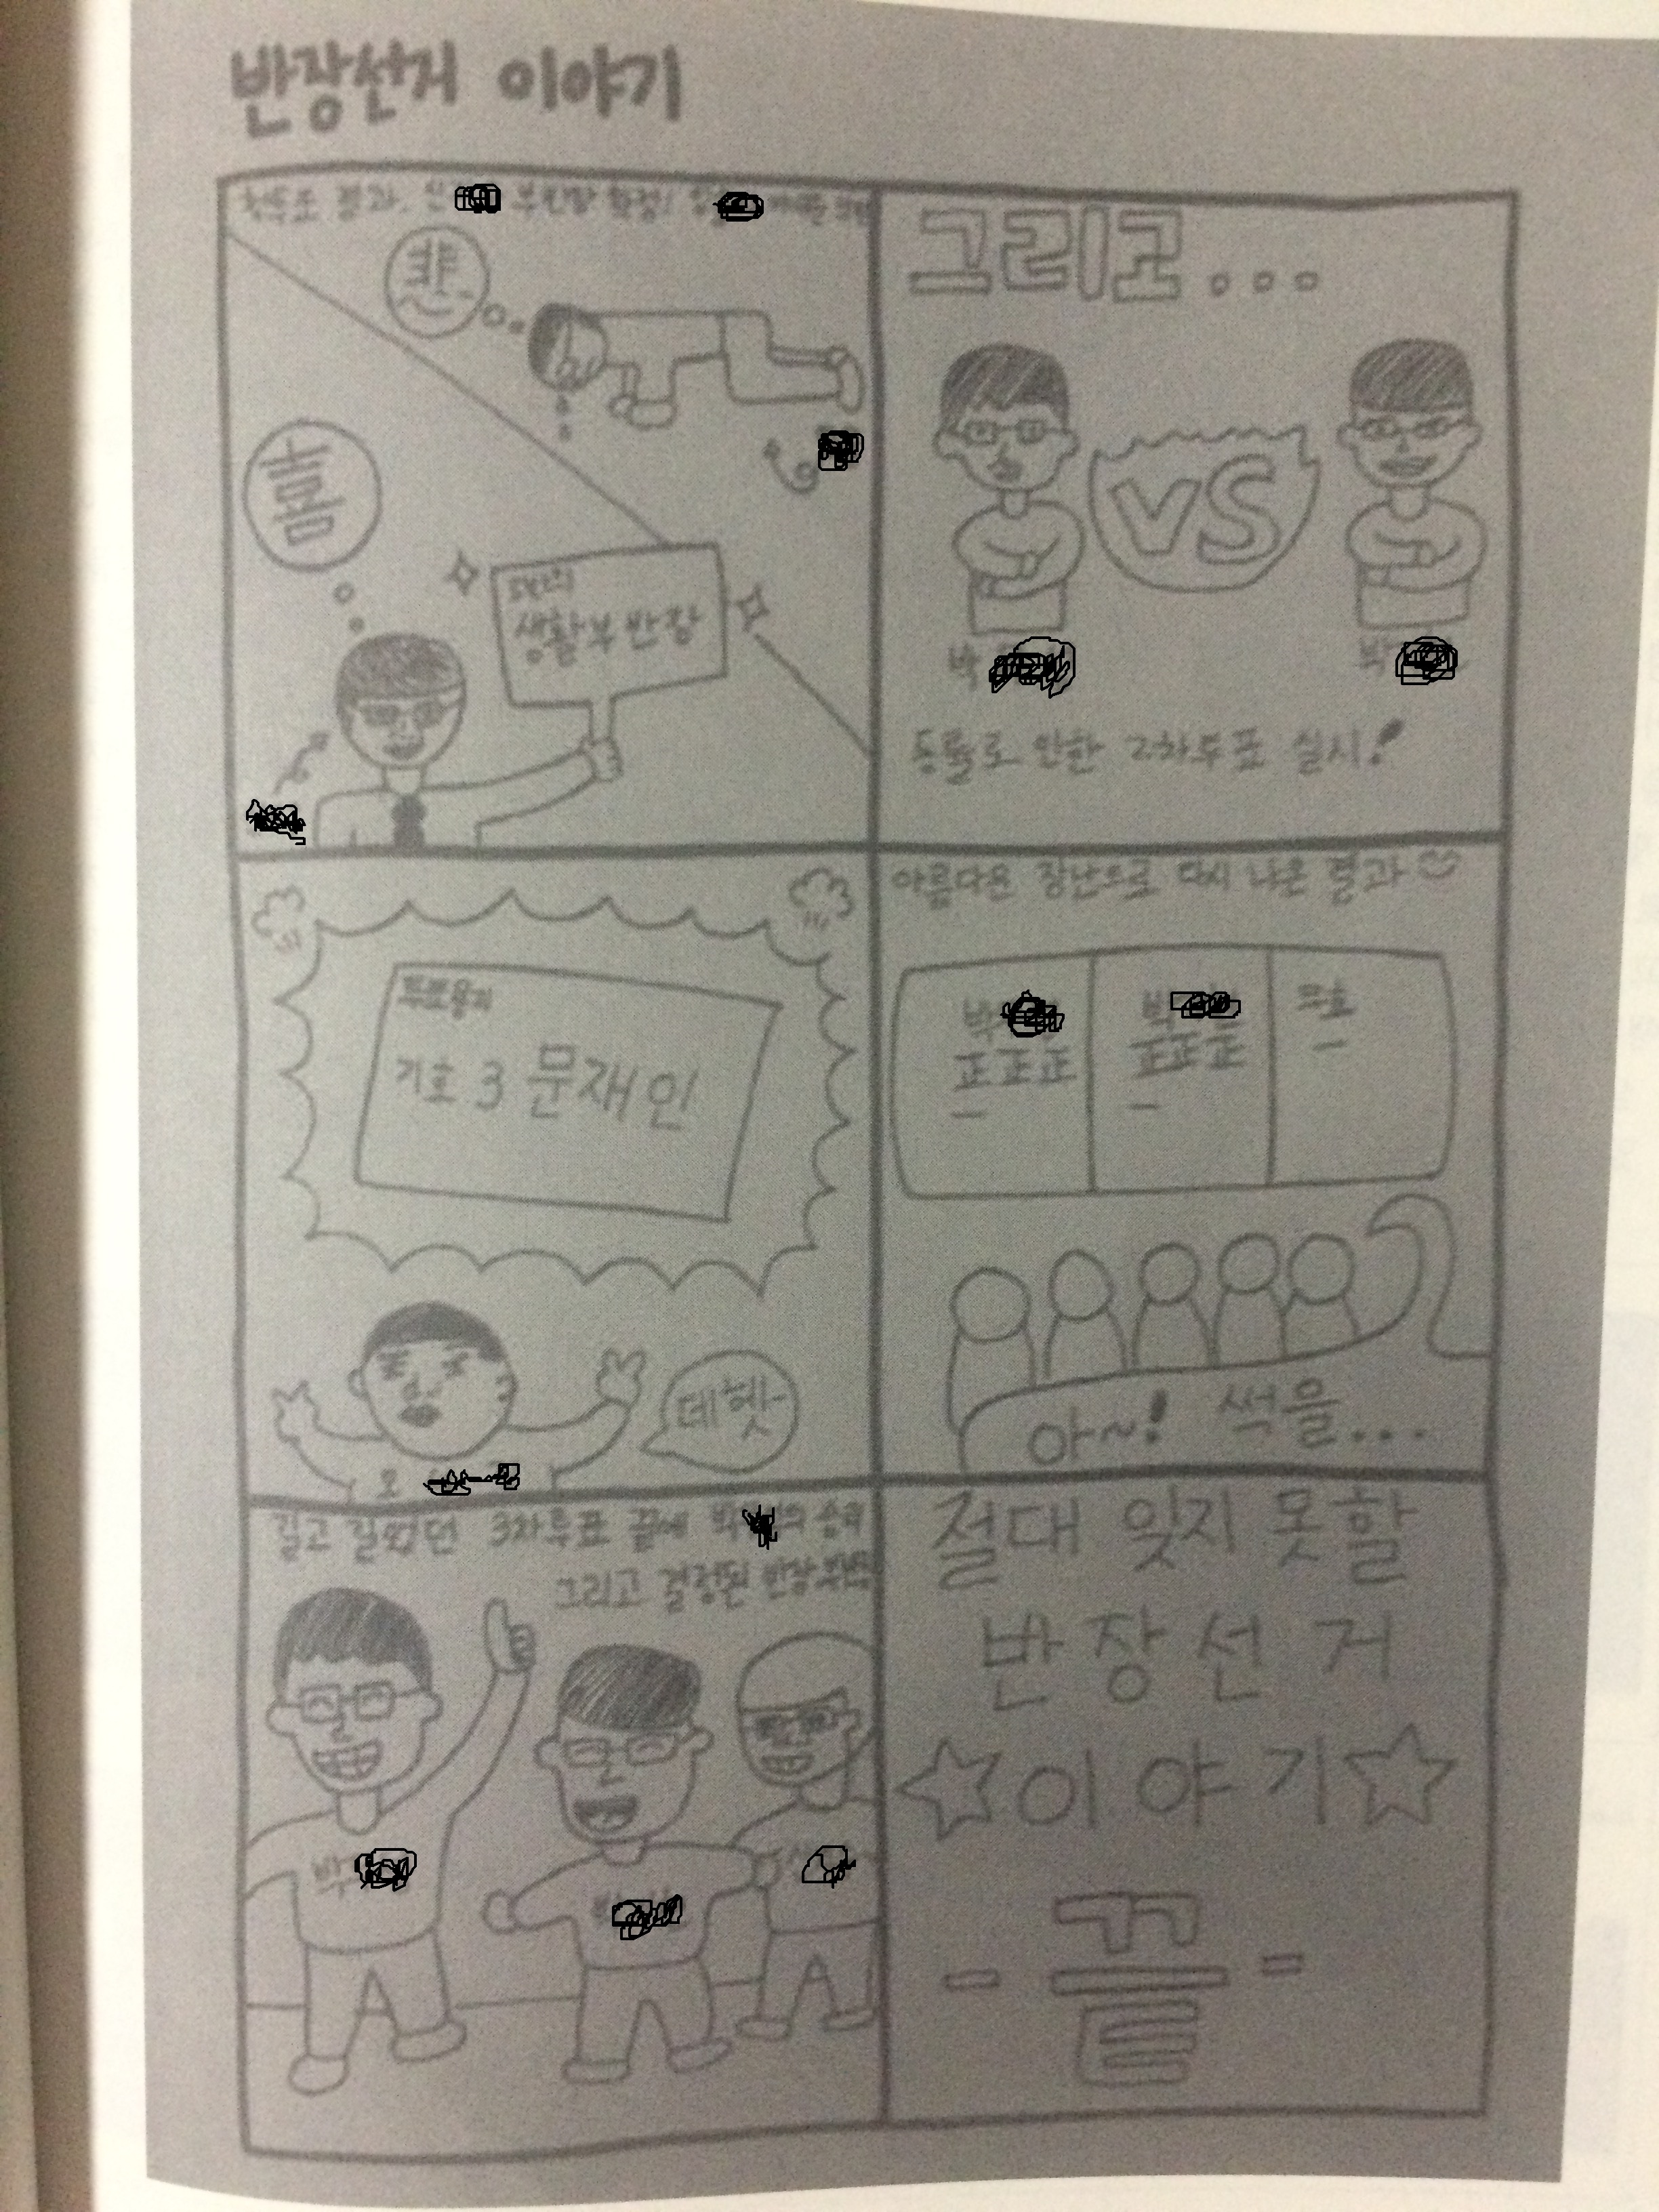 반장선거 이야기
첫투표 결과, 부반장 확정!
悲
홈
생활부반장
그리고...
VS
박
박
동률로 인한 2차투표 실시!
투표용지
기호 3 문재인
데헷-
오
아름다운 장난으로 다시 나온 결과
박
正正正
一
박
正正正
一
무효
一
아~! 썩을...
길고 길었던 3차투표 끝에 박 의 승리
그리고 결정된 반장
박
절대 잊지 못할
반장선거
☆이야기☆
- 끝 -